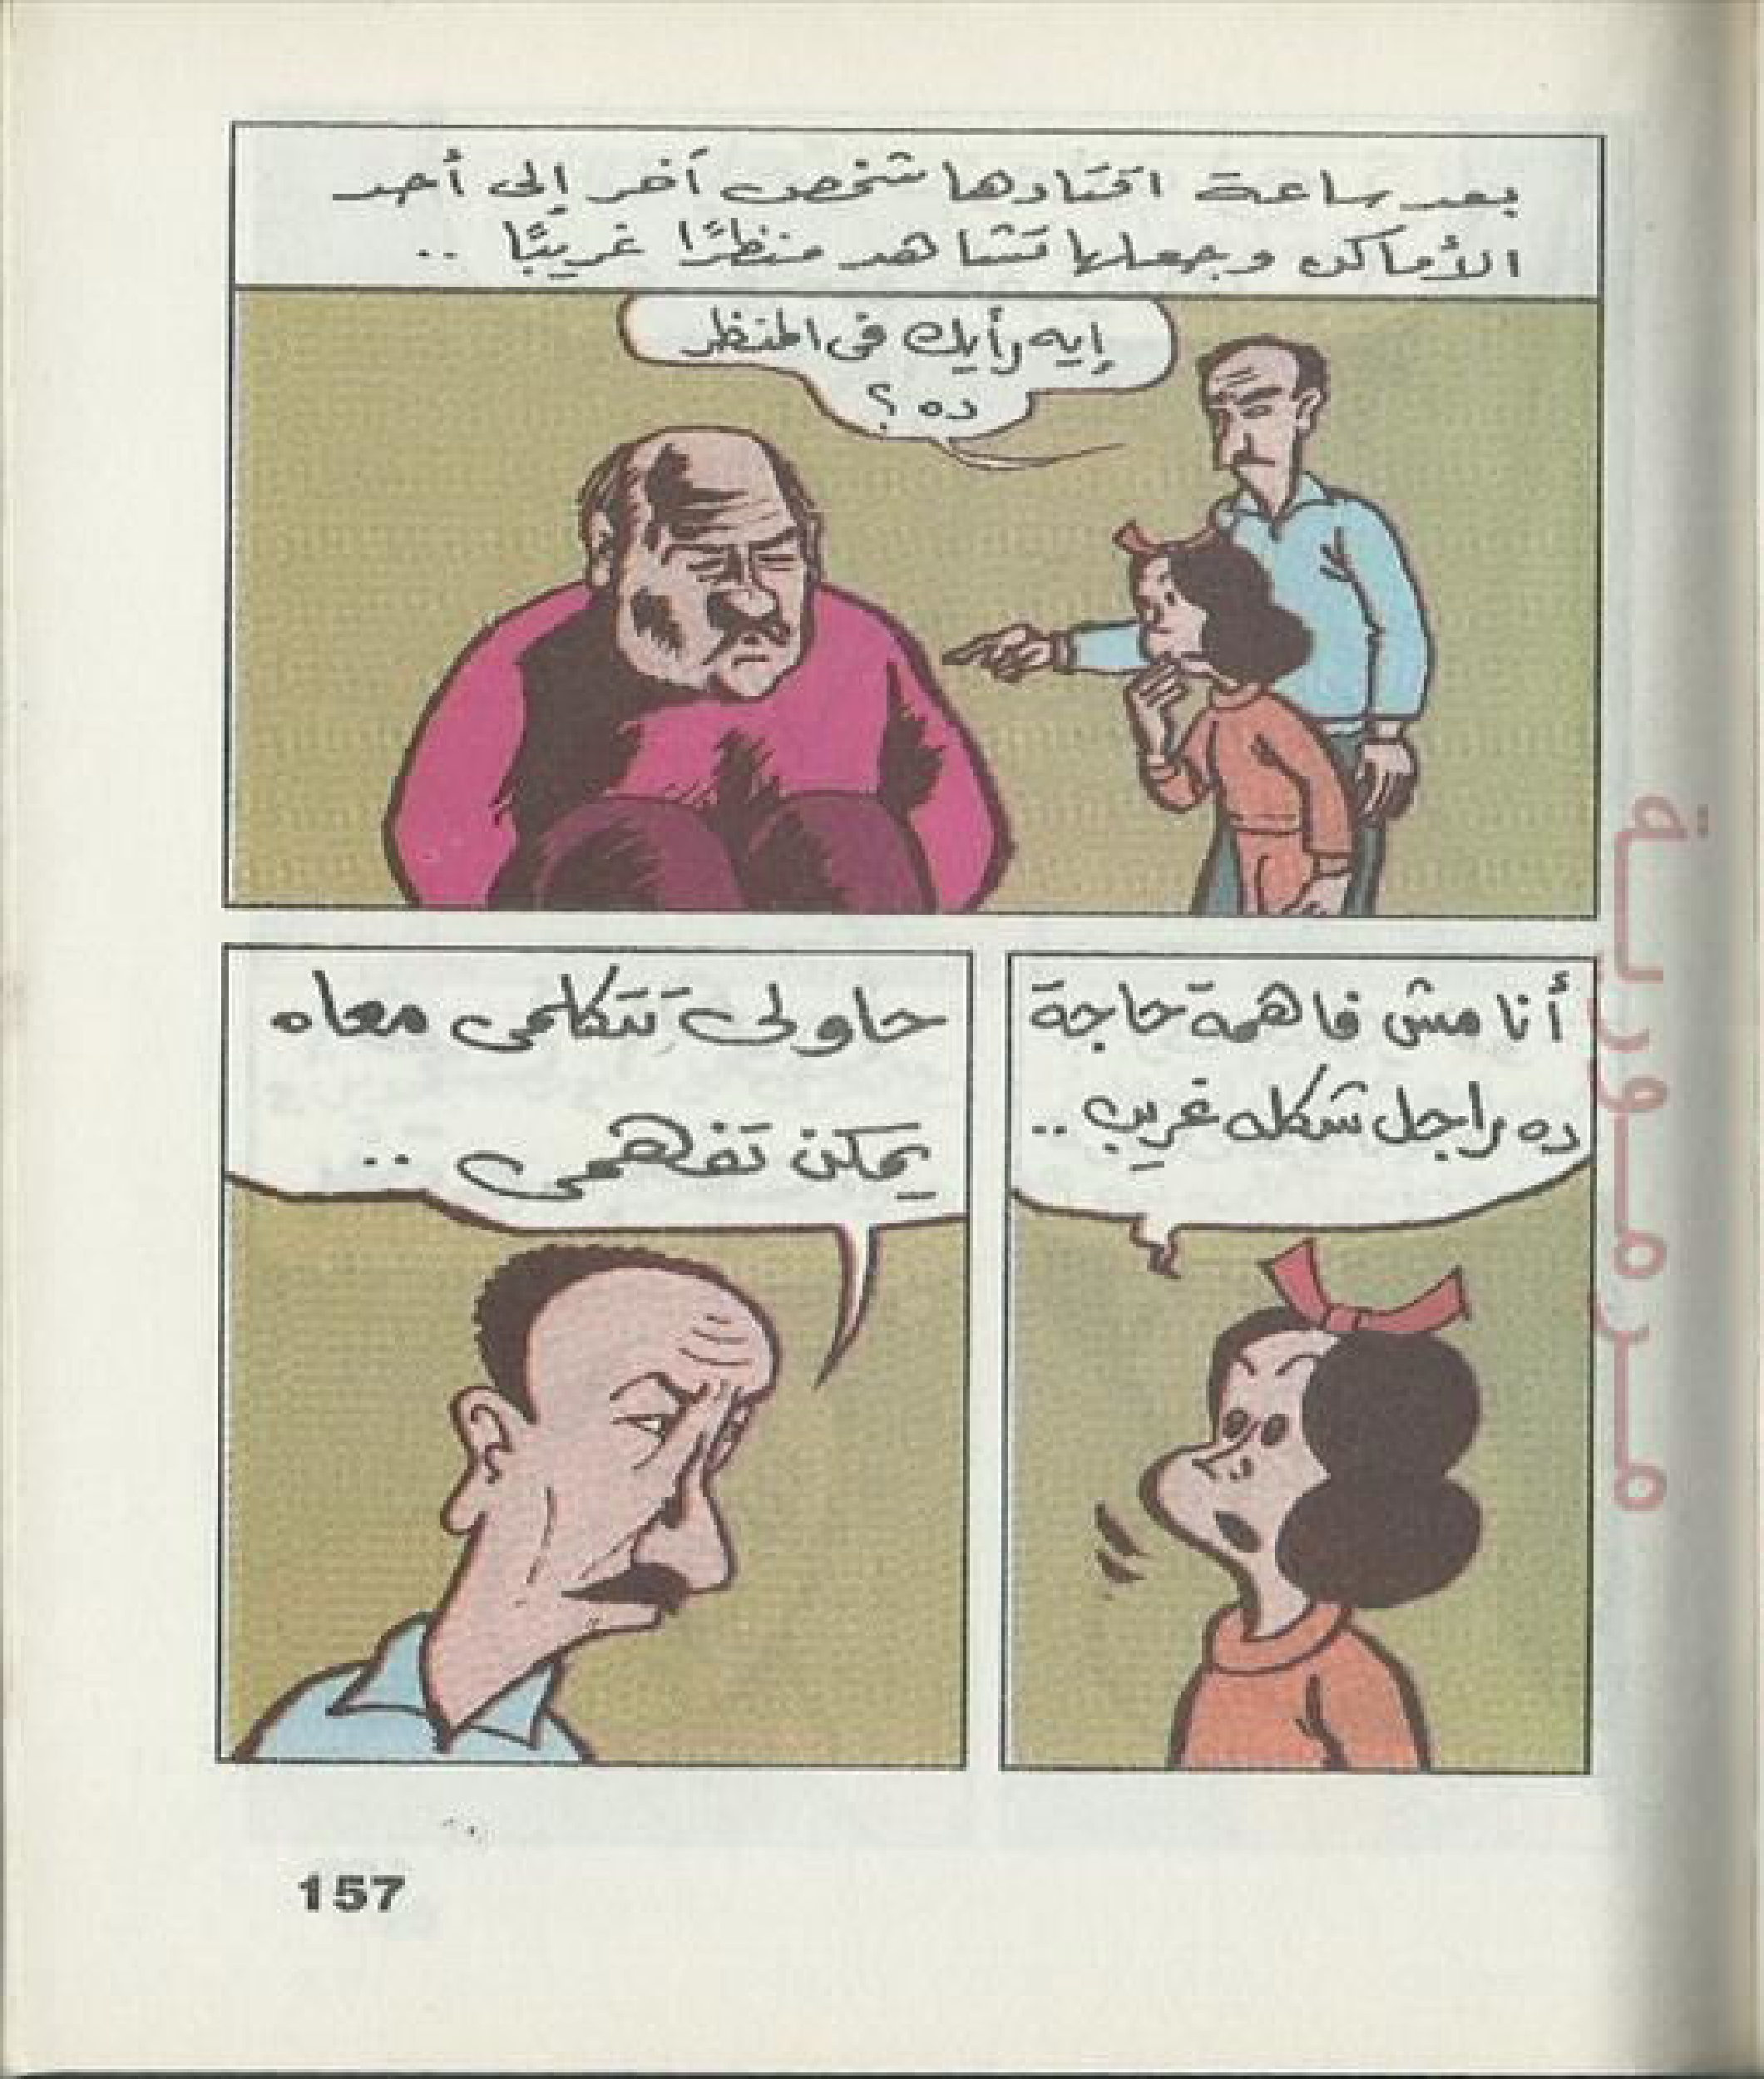 بعد ساعة اقتادها شخص آخر إلى أحد
الأماكن وجعلها تشاهد منظرًا غريبًا ..
إيه رأيك في المنظر
ده ؟
أنا مش فاهمة حاجة
ده راجل شكله غريب ..
حاولي تتكلمى معاه
يمكن تفهمى ..
مرمورية
157